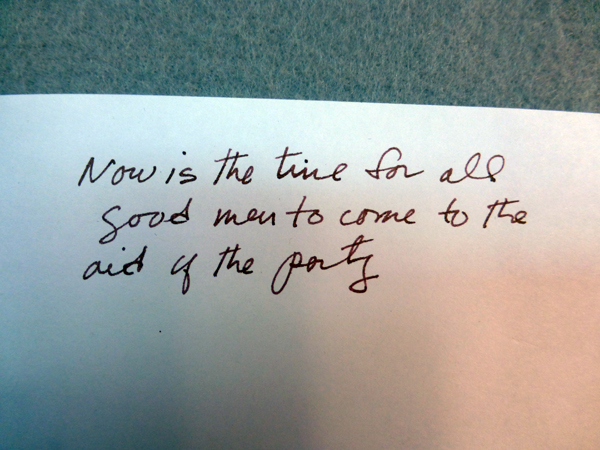 Now is the time for all
good men to come to the
aid of the party